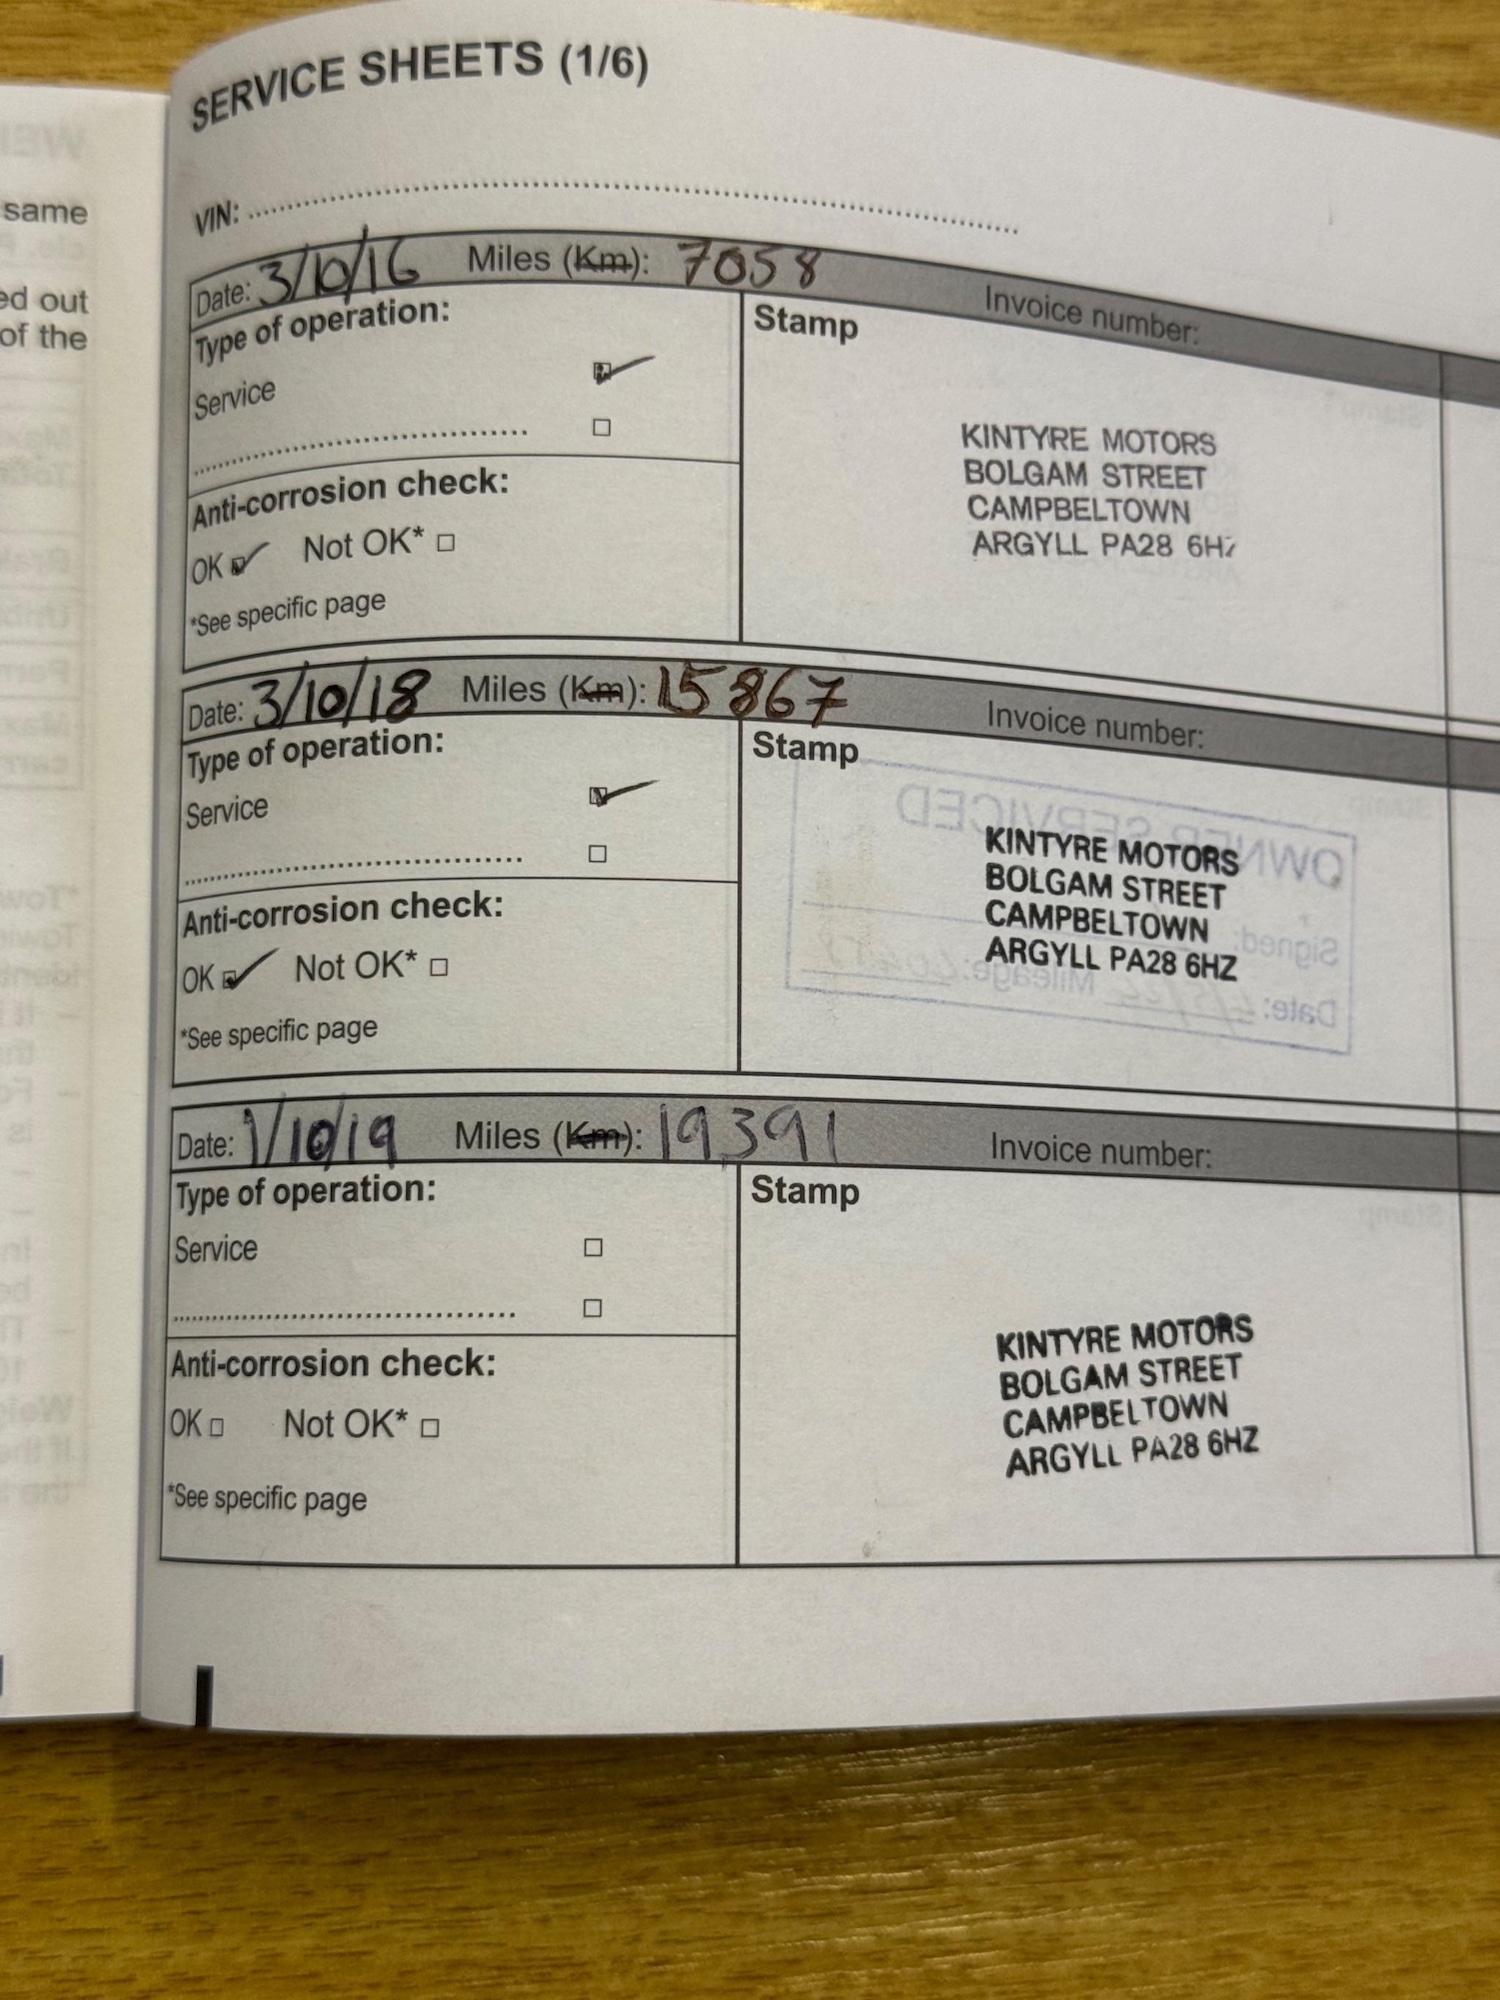 same
ed out
of the
SERVICE SHEETS (1/6)
VIN:
Date: 3/10/16 Miles (Km): 7058 Invoice number:
Type of operation:
Service
Anti-corrosion check:
OK Not OK*
*See specific page
Stamp
KINTYRE MOTORS
BOLGAM STREET
CAMPBELTOWN
ARGYLL PA28 6HZ
Date: 3/10/18 Miles (Km): 15867 Invoice number:
Type of operation:
Service
Anti-corrosion check:
OK Not OK*
*See specific page
Stamp
KINTYRE MOTORS
BOLGAM STREET
CAMPBELTOWN
ARGYLL PA28 6HZ
OWNER SERVICED
Signed:
Date: Mileage:
Date: 1/10/19 Miles (Km): 19,391 Invoice number:
Type of operation:
Service
Anti-corrosion check:
OK Not OK*
*See specific page
Stamp
KINTYRE MOTORS
BOLGAM STREET
CAMPBELTOWN
ARGYLL PA28 6HZ